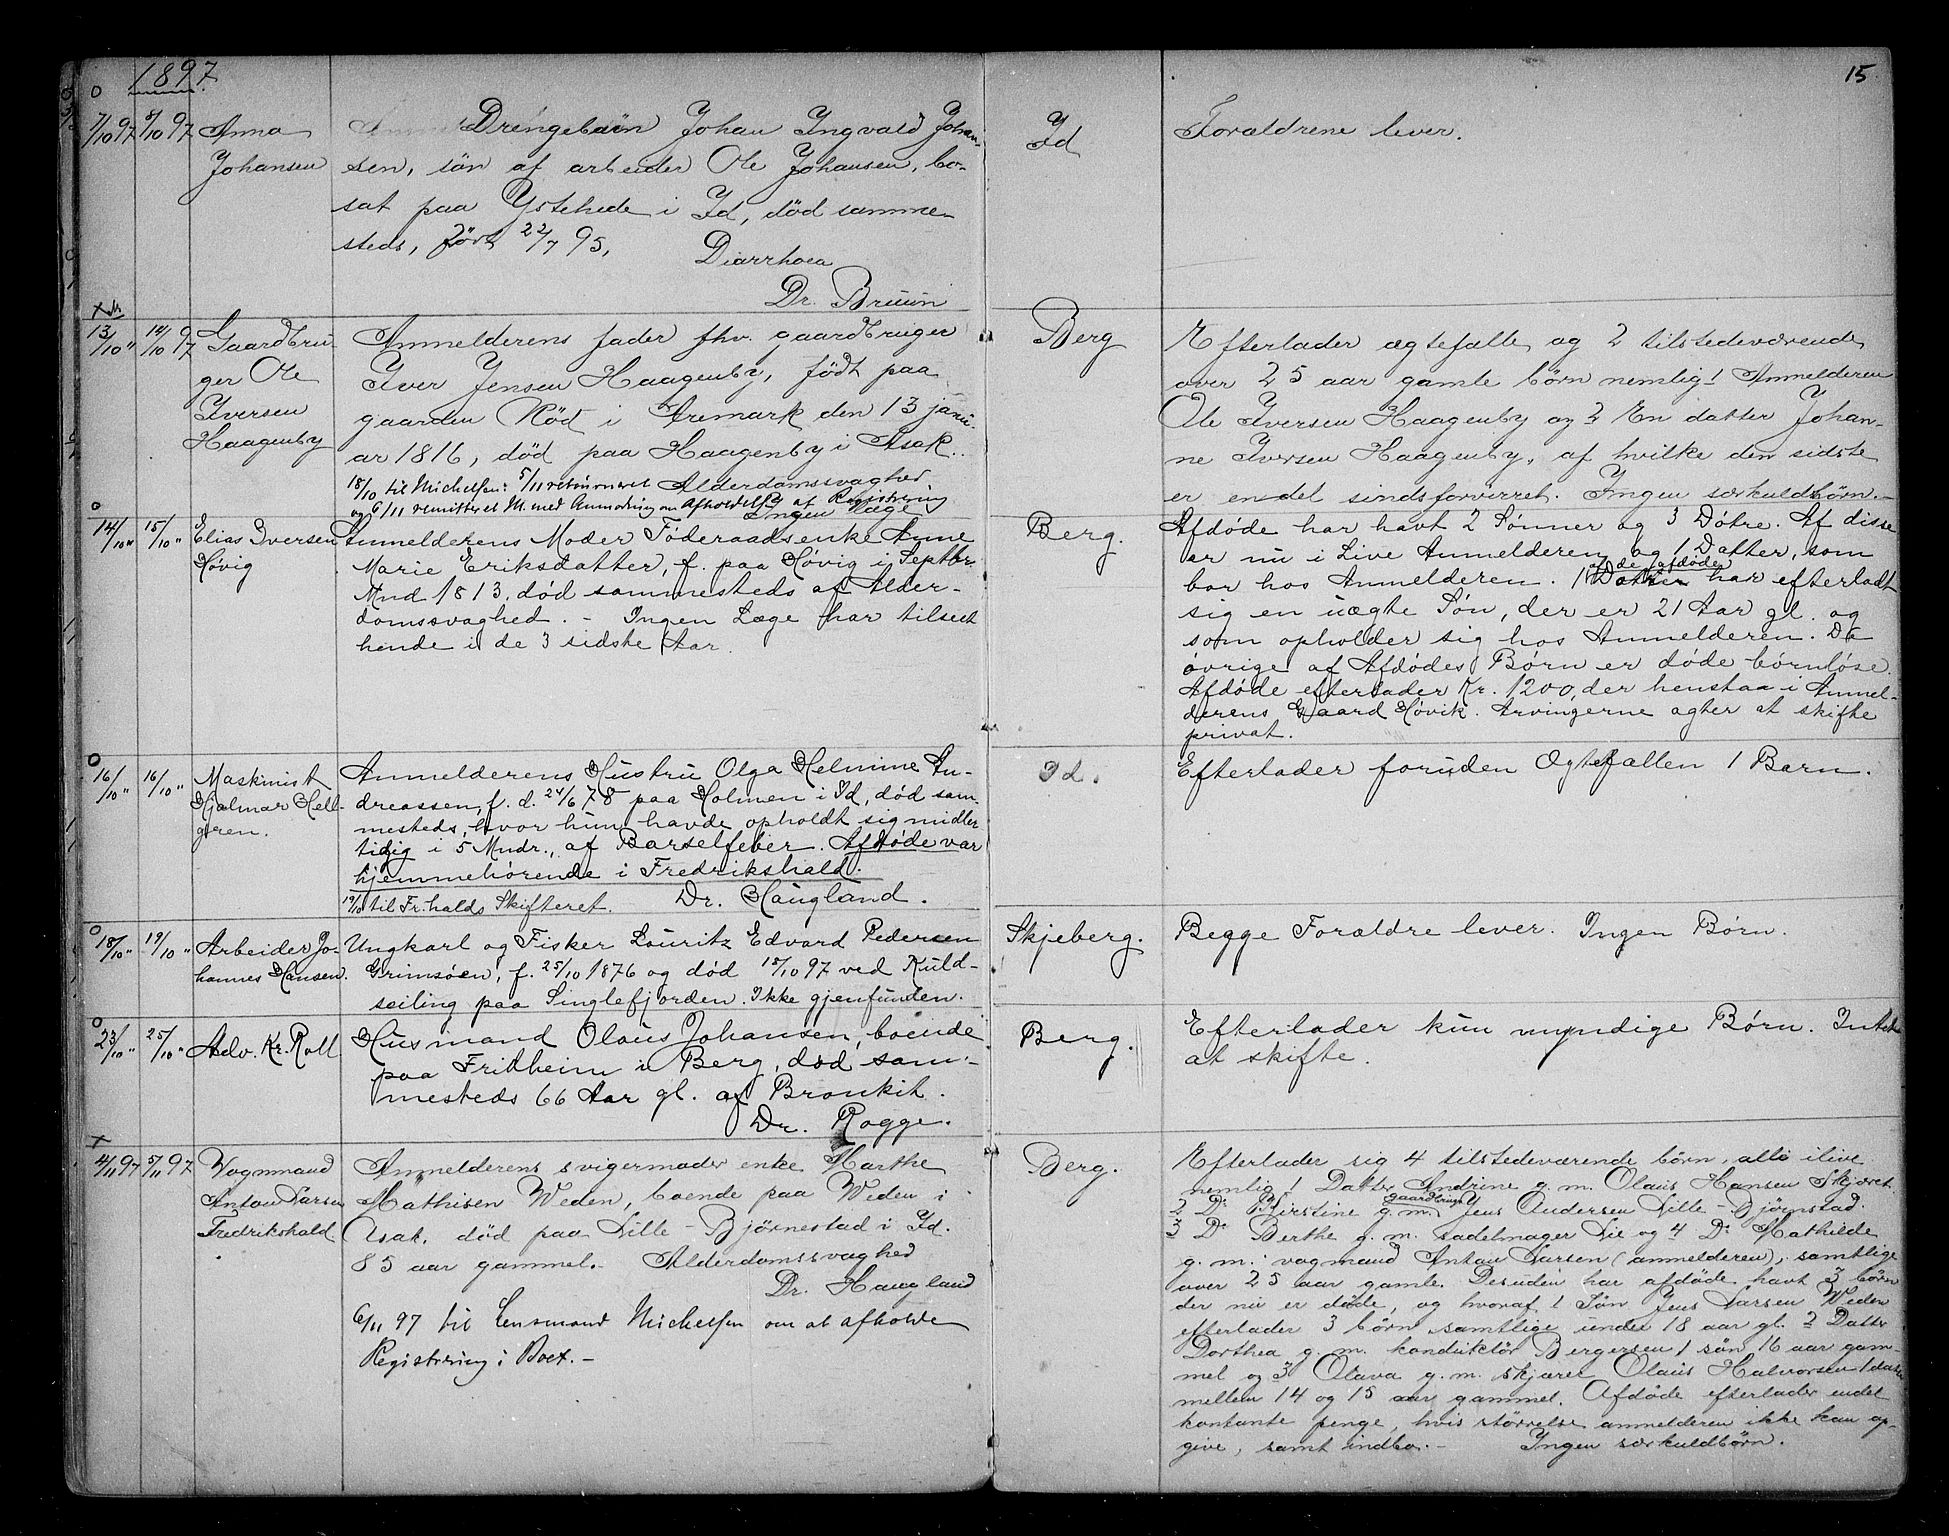 1897.
15
7/10 97 8/10 97 Anna Johansen
Drengebarn Johan Ingvald Johan-
sen, sön af arbeider Ole Johansen, bo-
sat paa Ystehede i Id, död samme-
steds, född 22/7 95,
Diarrhoea
Dr. Bruun
Id
Forældrene lever.
13/10 " 14/10 97
Gaardbru-
ger Ole
Iversen
Haagenby
Anmelderens fader fhv. gaardbruger
Iver Jensen Haagenby, födt paa
gaarden Röd i Aremark den 13 janu-
ar 1816, död paa Haagenby i Asak.
18/10 til Michelsen: 5/11 retourneret Alderdomssvaghed.
og 6/11 remitteret M. med Anmodning om Afholdelse af Registrering
Ingen læge
Berg
Efterlader ægtefælle og 2 tilstedeværende
over 25 aar gamle börn nemlig 1 Anmelderen
Ole Iversen Haagenby og 2 En datter Johan-
ne Iversen Haagenby, af hvilke den sidste
er endel sindsforvirret. Ingen særkuldbörn.
14/10 " 15/10 "
Elias Iversen
Høvig
Anmelderens Moder Föderaadsenke Anne
Marie Eriksdatter, f. paa Høvig i Septbr.
Mnd 1813, död sammesteds af Alder-
domssvaghed. - Ingen Læge har tilseet
hende i de 3 sidste Aar.
Berg.
Afdøde har havt 2 Sønner og 3 Døtre. Af disse
er nu i Live Anmelderen og 1 Datter, som
bor hos Anmelderen. 1 af de afdøde
Døtre har efterladt
sig en uægte Søn, der er 21 Aar gl. og
som opholder sig hos Anmelderen. De
øvrige af Afdødes Børn er døde børnløse.
Afdøde efterlader Kr. 1200, der henstaa i Anmel-
derens Gaard Høvik. Arvingerne agter at skifte
privat.
16/10 " 16/10 "
Maskinist
Hjalmar Hell-
gren.
Anmelderens Hustru Olga Helmine An-
dreassen, f. d. 24/6 78 paa Holmen i Id, død sam-
mesteds, hvor hun havde opholdt sig midler
tidig i 5 Mndr., af Barselfeber. Afdøde var
hjemmehørende i Fredrikshald.
19/10 til Fr.halds Skifteret. Dr. Haugland.
Id.
Efterlader foruden Ægtefællen 1 Barn.
18/10 " 19/10 "
Arbeider Jo-
hannes Hansen.
Ungkarl og Fisker Louritz Edvard Pedersen
Grimsøen, f. 25/10 1876 og død 15/10 97 ved Kuld-
seiling paa Singlefjorden. Ikke gjenfunden.
Skjeberg.
Begge Forældre lever. Ingen Børn.
23/10 " 25/10 "
Adv. Kr. Roll
Husmand Olaus Johansen, boende
paa Fridheim i Berg, død sam-
mesteds 66 Aar gl. af Bronkit.
Dr. Rogge.
Berg.
Efterlader kun myndige Børn. Intet
at skifte.
4/11 97 5/11 97
Vognmand
Anton Larsen
Fredrikshald.
Anmelderens svigermoder enke Marthe
Mathisen Weden, boende paa Weden i
Asak, död paa Lille-Bjørnestad i Id.
85 aar gammel. Alderdomssvaghed
Dr. Haugland
6/11 97 til Lensmand Michelsen om at afholde
Registrering i Boet. -
Berg.
Efterlader sig 4 tilstedeværende börn, alle ilive
nemlig 1 Datter Andrine g. m. Olaus Hansen Skjæret
2 Do Kirstine g. m. gaardbruger Jens Andersen Lille-Bjørnstad.
3 Do Berthe g. m. sadelmager Lie og 4 Do Mathilde
g. m. vogmand Anton Larsen (anmelderen), samtlige
over 25 aar gamle. Desuden har afdøde havt 3 börn
der nu er døde, og hvoraf 1 Søn Jens Larsen Weden
efterlader 3 börn samtlige under 18 aar gl. 2 Datter
Dorthea g. m. konduktör Bergersen 1 sön 16 aar gam-
mel og 3 Olava g. m. skjærer Olaus Halvorsen 1 datter
mellem 14 og 15 aar gammel. Afdøde efterlader endel
kontante penge, hvis större​lse anmelderen ikke kan op-
give, samt indbo. - Ingen særkuldbörn.